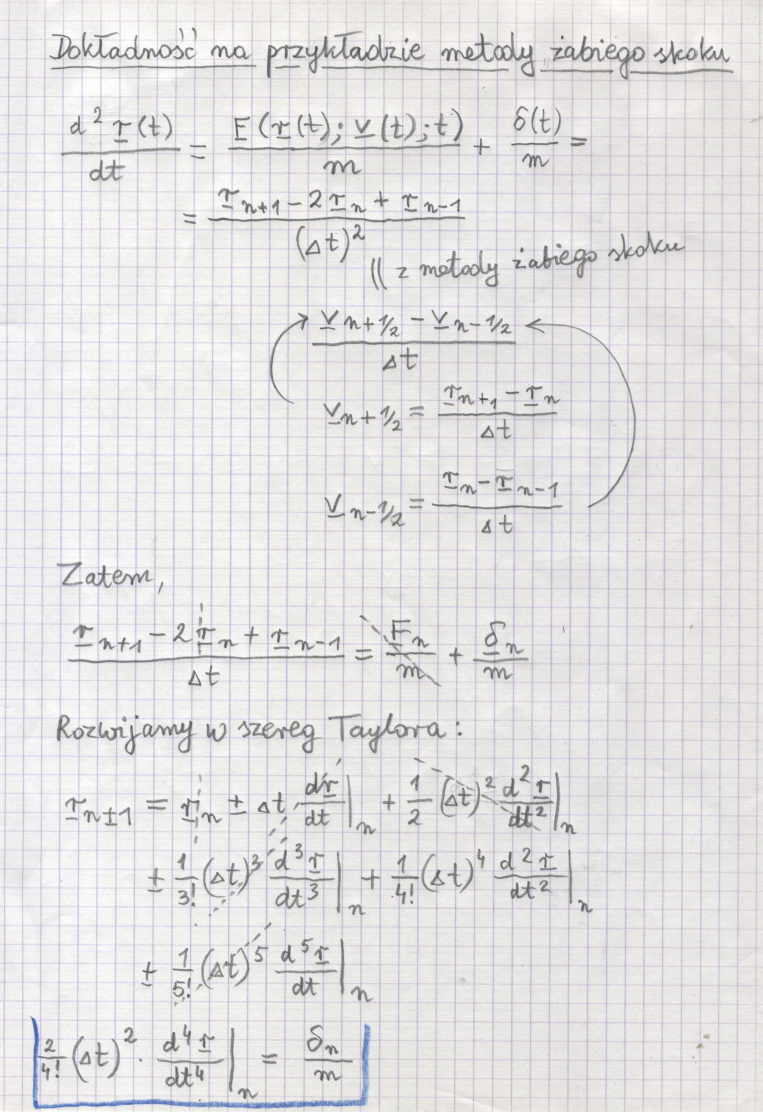 Dokładność na przykładzie metody żabiego skoku
d² r(t) / dt = F(r(t); v(t); t) / m + δ(t) / m =
= (r n+1 - 2 r n + r n-1) / (Δt)²
|| z metody żabiego skoku
(v n+1/2 - v n-1/2) / Δt
v n+1/2 = (r n+1 - r n) / Δt
v n-1/2 = (r n - r n-1) / Δt
Zatem,
(r n+1 - 2 r n + r n-1) / Δt = F n / m + δ n / m
Rozwijamy w szereg Taylora:
r n±1 = r n ± Δt dr/dt | n + 1/2 (Δt)² d² r / dt² | n
± 1/3! (Δt)³ d³ r / dt³ | n + 1/4! (Δt)⁴ d² r / dt² | n
± 1/5! (Δt)⁵ d⁵ r / dt | n
2/4! (Δt)² · d⁴ r / dt⁴ | n = δ n / m